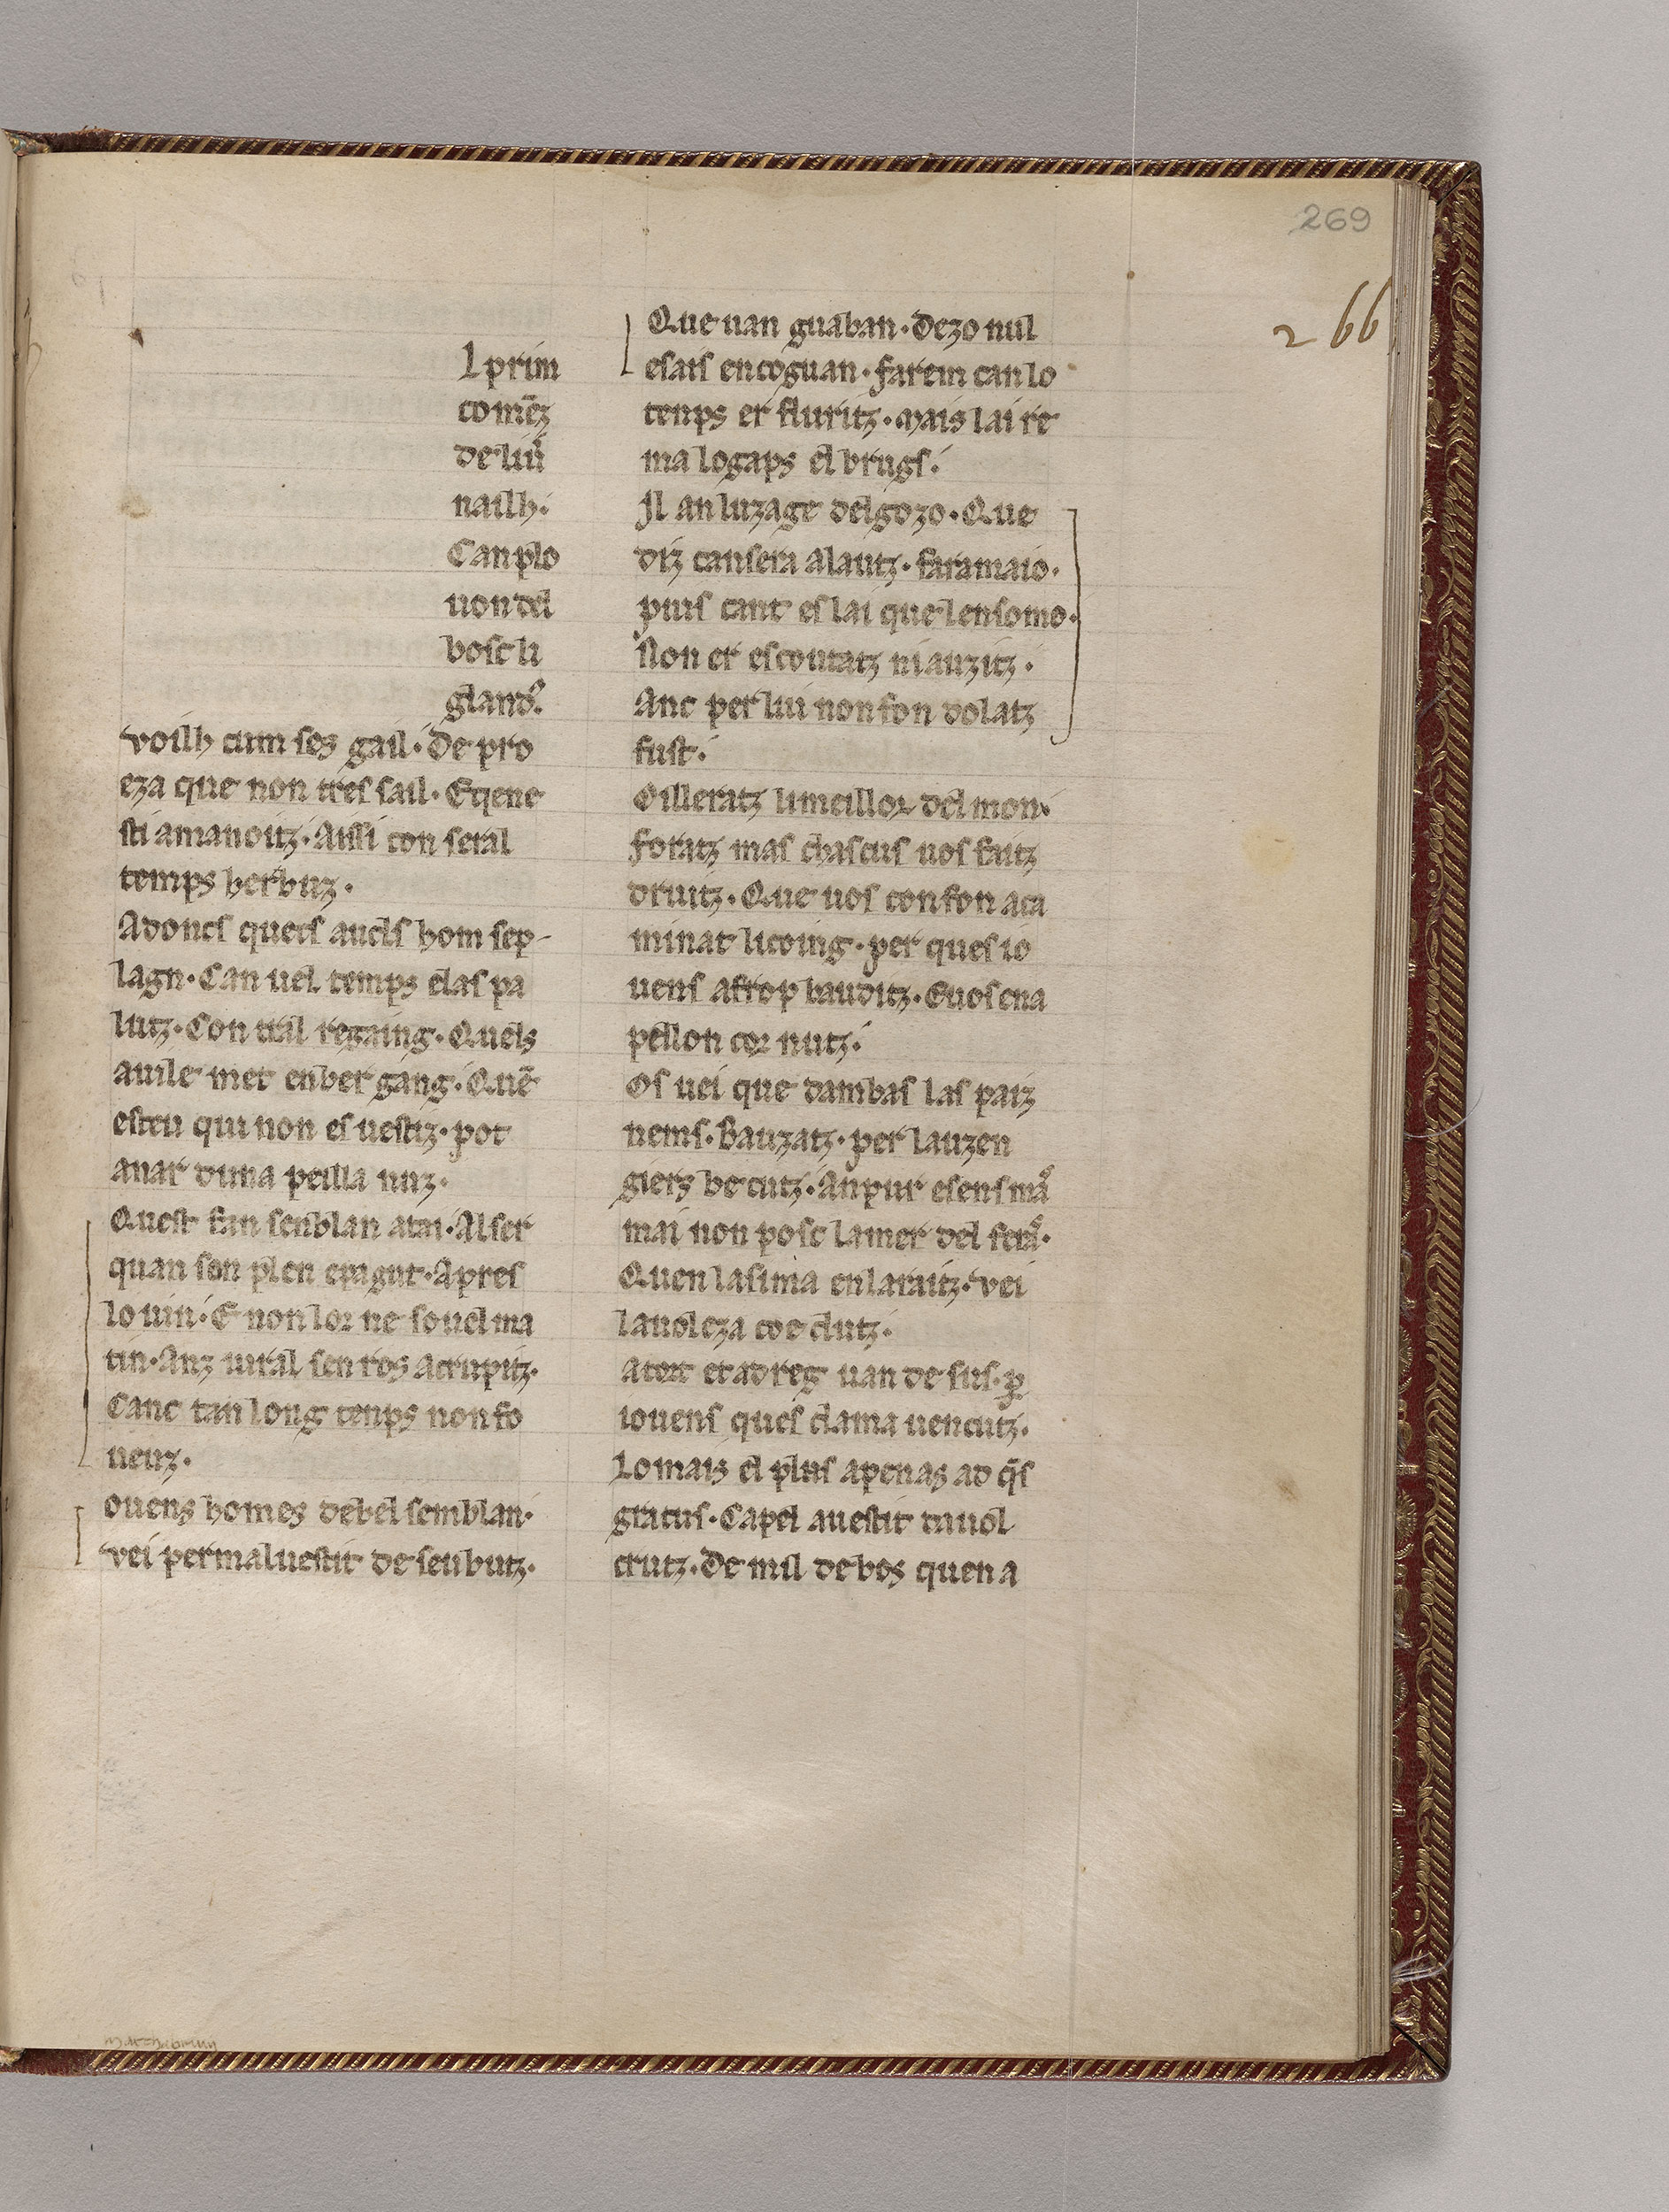 269
266
l prim
comēz
de liū
nailh.
Can plo
uon del
bosc li
gland'.
voilh cum ses gail. De pro
eza que non tres sail. Eqene
sti amanoitz. Aissi con seral
temps herbuz.
Adoncs queis auels hom sep-
lagn. Can uel temps elas pa
lutz. Con tral regaing. Quels
auile met enber gang. Quē
estru qui non es uestiz. pot
anar duna peilla nuz.
Quest fan senblan atai. Al ser
quan son plen epagut. Apres
lo uin. E non lor ne souel ma
tin. Anz iural sen ros acrupitz.
Canc tan long tenps non fo
ueuz.
ouens homes de bel semblan.
vei per maluestit de seubutz.
Que uan guaban. Dezo mil
esais encoguan. farem can lo
tenps er fluritz. Mais lai re
ma logaps el brugs.
Il an luzage delgozo. Que
diz can sera alautz. fara maio.
puis cant es lai que lensomo.
Non er escoutatz ni auzitz.
Anc per lui non fon dolatz
fust.
Oilleratz li meillor del mon.
foratz mas chascus uos faitz
druitz. Que uos confon aca
minat licoing. per ques io
uens atrop bauditz. Euos ena
pellon cor nutz.
Os uei que dambas las paiz
nems. Bauzatz. per lauzen
giers be cutz. Anpur esens mā
mai non posc lamer del ferā.
Quen lasima enlaraitz. vei
lauoleza coe clutz.
atort et adreg uan de sus. p
iouens ques clama uencutz.
Lo mais el plus apenas ad q̄s
gracus. Capel auestit tauol
crutz. De mil de bos quen a